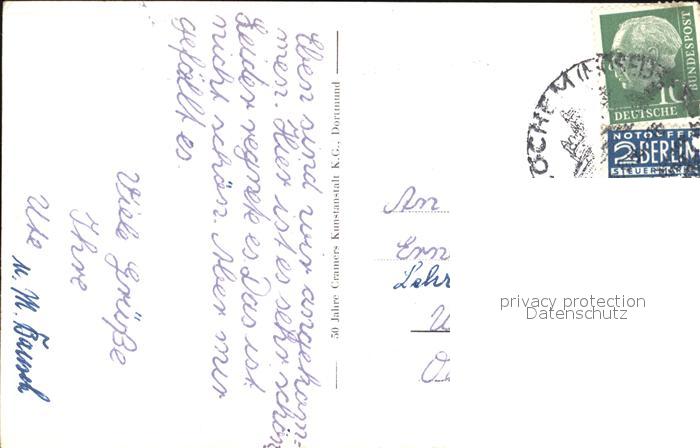 Eben sind wir angekom=
men. Hier ist es sehr schön
Leider regnet es. Das ist
nicht schön. Aber mir
gefällt es.
Viele Grüße
Ihre
Ute
u. M.
50 Jahre Cramers Kunstanstalt K.G., Dortmund
An
Ern
Lehr
U
COCHEM
10
DEUTSCHE
BUNDESPOST
NOTOPFER
2 BERLIN
STEUERMARKE
privacy protection
Datenschutz